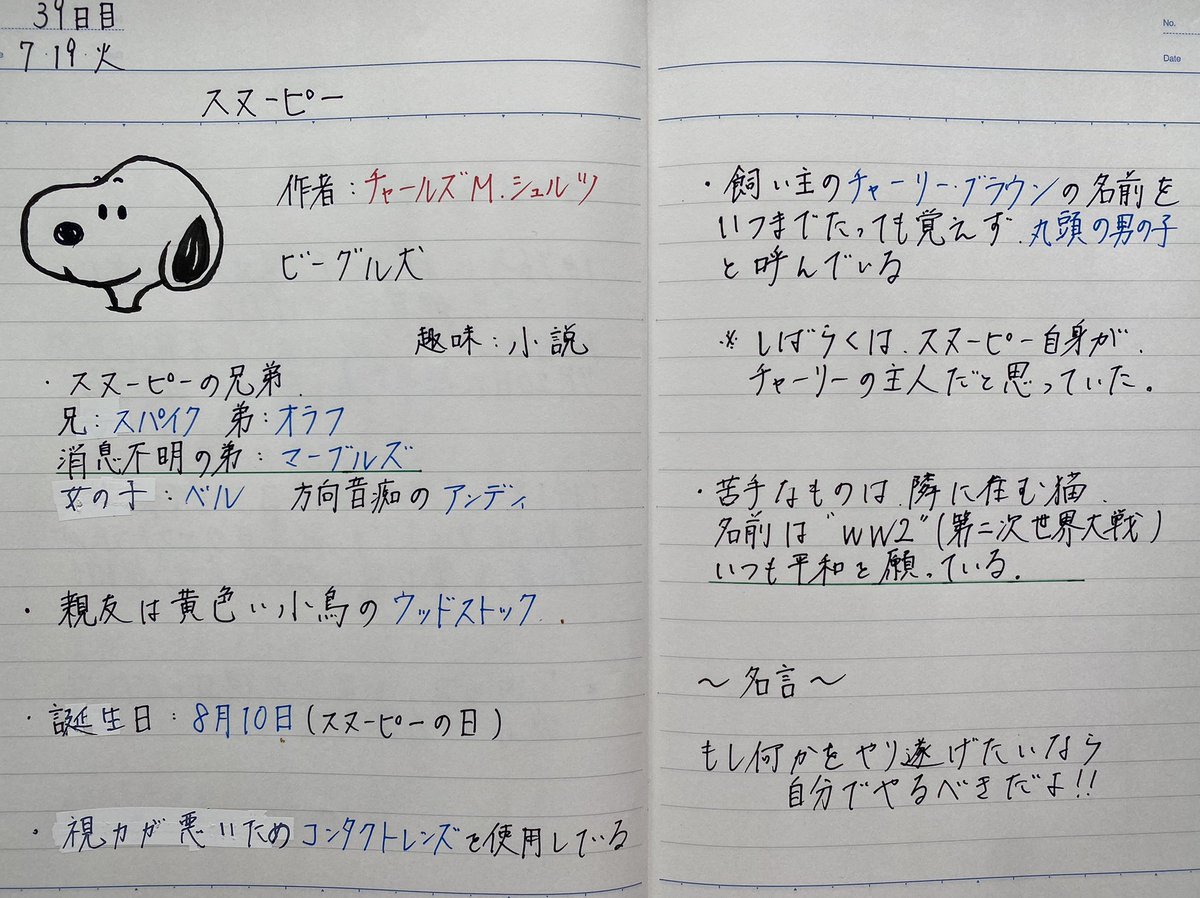 39日目
7・19・火
スヌーピー
作者：チャールズM.シュルツ
ビーグル犬
趣味：小説
・スヌーピーの兄弟.
兄：スパイク 弟：オラフ
消息不明の弟：マーブルズ
女の子：ベル 方向音痴のアンディ
・親友は黄色い小鳥のウッドストック.
・誕生日：8月10日(スヌーピーの日)
・視力が悪いためコンタクトレンズを使用している
No.
Date
・飼い主のチャーリー・ブラウンの名前を
いつまでたっても覚えず.丸頭の男の子
と呼んでいる
※しばらくは.スヌーピー自身が.
チャーリーの主人だと思っていた。
・苦手なものは.隣に住む猫.
名前は"WW2"(第二次世界大戦)
いつも平和を願っている.
～名言～
もし何かをやり遂げたいなら
自分でやるべきだよ!!